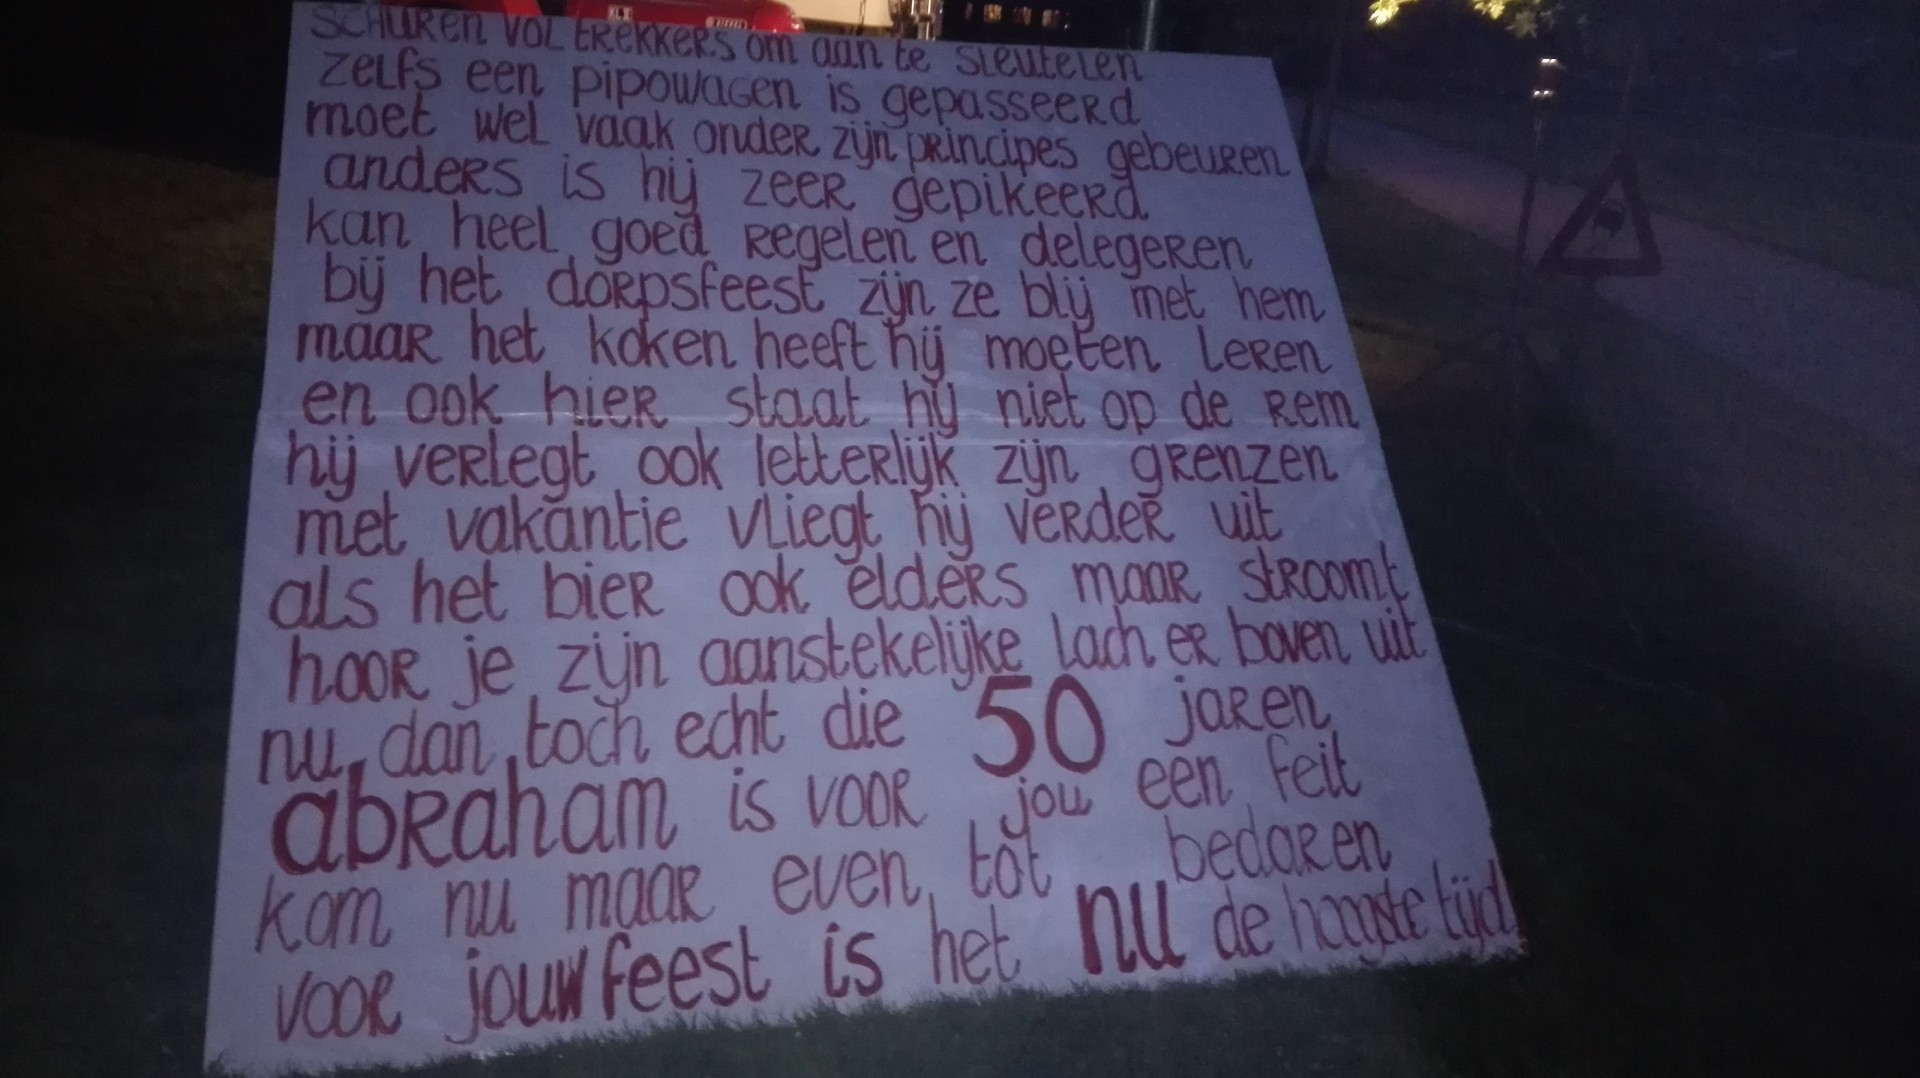 schuren vol trekkers om aan te sleutelen
zelfs een pipowagen is gepasseerd
moet wel vaak onder zijn principes gebeuren
anders is hij zeer gepikeerd
kan heel goed regelen en delegeren
bij het dorpsfeest zijn ze blij met hem
maar het koken heeft hij moeten leren
en ook hier staat hij niet op de rem
hij verlegt ook letterlijk zijn grenzen
met vakantie vliegt hij verder uit
als het bier ook elders maar stroomt
hoor je zijn aanstekelijke lach er boven uit
nu dan toch echt die 50 jaren
abraham is voor jou een feit
kom nu maar even tot bedaren
voor jouw feest is het nu de hoogste tijd